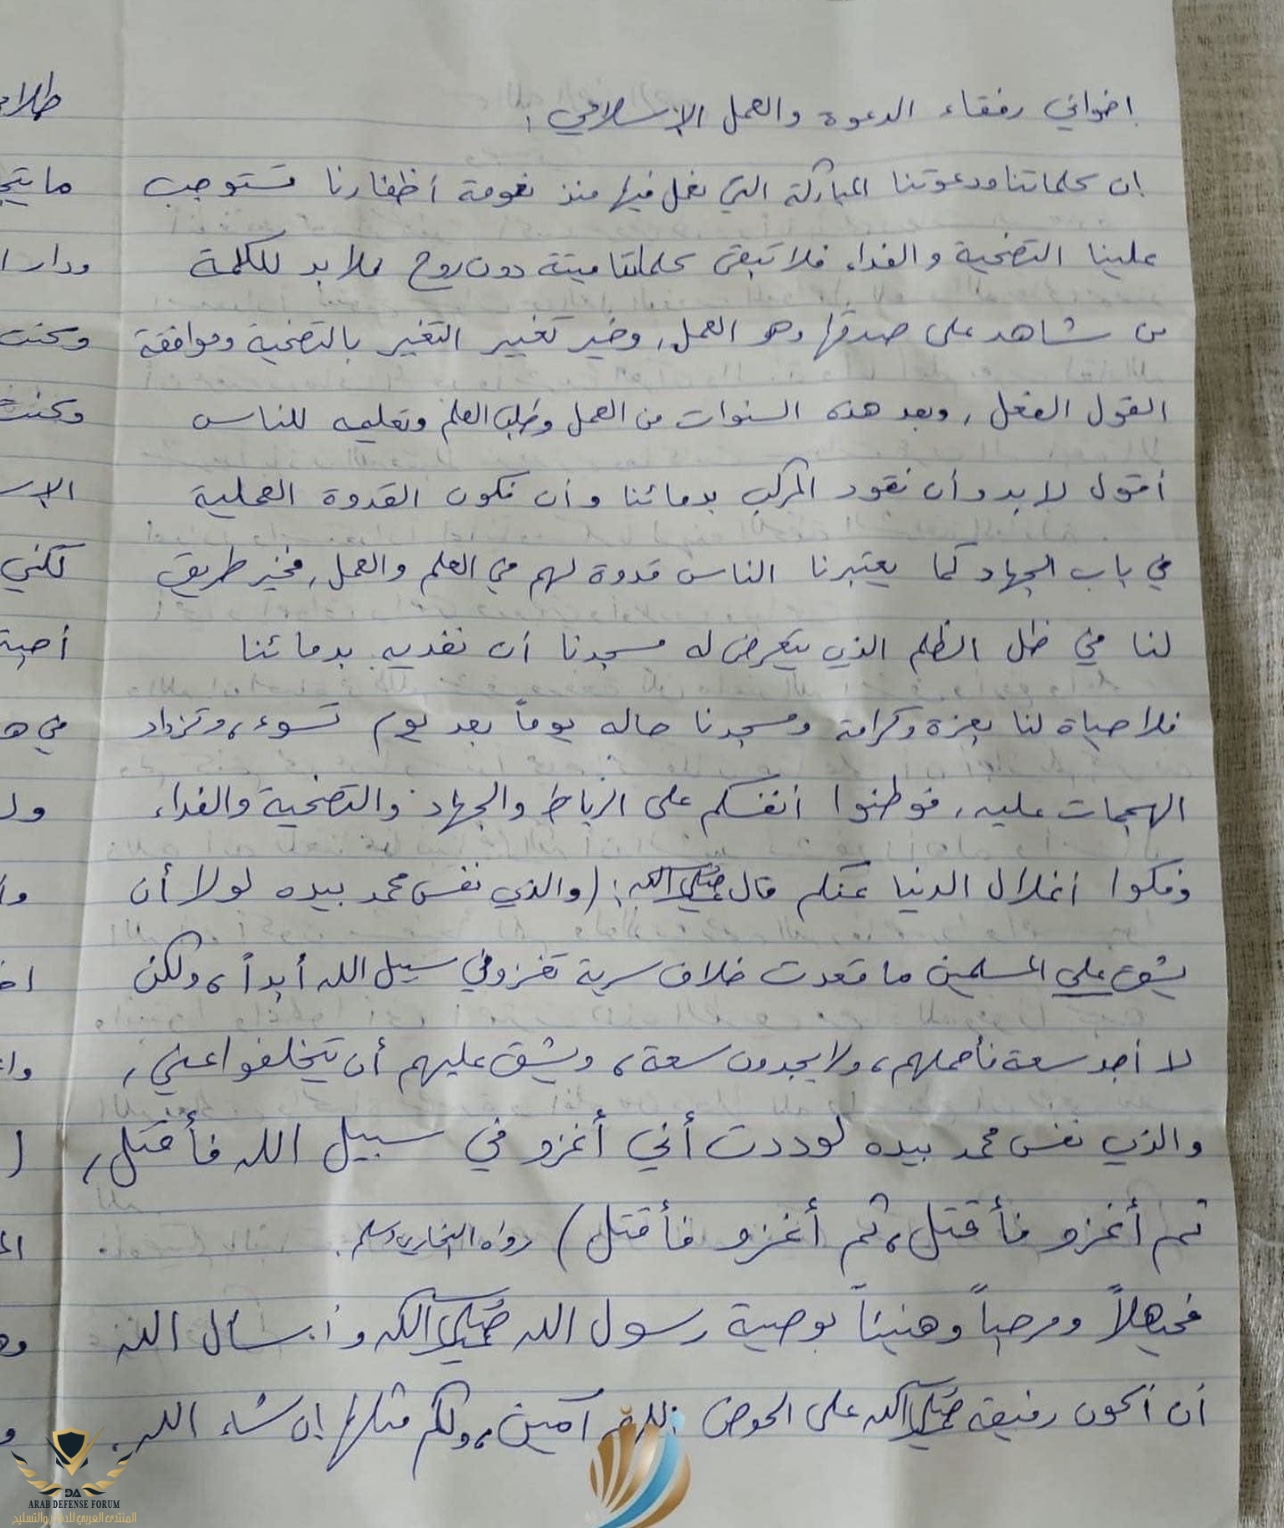 اخواني رفقاء الدعوة والعمل الإسلامي:
ان كلماتنا ودعوتنا المباركة التي نعمل فيها منذ نعومة أظفارنا تستوجب
علينا التضحية والفداء فلا تبقى كلماتنا ميتة دون روح فلا بد للكلمة
من شاهد على صدقها وهو العمل، وخير تغيير التغير بالتضحية وموافقة
القول الفعل، وبعد هذه السنوات من العمل وطلب العلم وتعليمه للناس
أقول لا بد وأن نقود المركب بدمائنا وأن نكون القدوة العملية
في باب الجهاد كما يعتبرنا الناس قدوة لهم في العلم والعمل، فخير طريق
لنا في ظل الظلم الذي يتعرض له مسجدنا أن نفديه بدمائنا
فلا حياة لنا بعزة وكرامة ومسجدنا حاله يوماً بعد يوم تسوء، وتزداد
الهجمات عليه، فوطنوا أنفسكم على الرباط والجهاد والتضحية والفداء
وفكوا أغلال الدنيا عنكم قال ﷺ: (والذي نفس محمد بيده لولا أن
يشق على المسلمين ما قعدت خلاف سرية تغزو في سبيل الله أبداً، ولكن
لا أجد سعة فأحملهم، ولا يجدون سعة، ويشق عليهم أن يتخلفوا عني،
والذي نفس محمد بيده لوددت أني أغزو في سبيل الله فأقتل،
ثم أغزو فأقتل، ثم أغزو فأقتل) رواه البخاري ومسلم.
فحيهلاً ومرحباً وهنيئاً بوصية رسول الله ﷺ وأسأل الله
أن أكون رفيقه ﷺ على الحوض اللهم آمين، ولكم مثلها إن شاء الله.
ما يتج
وكنت
وكنت
لكني
في ه
DA
ARAB DEFENSE FORUM
المنتدى العربي للدفاع والتسليح